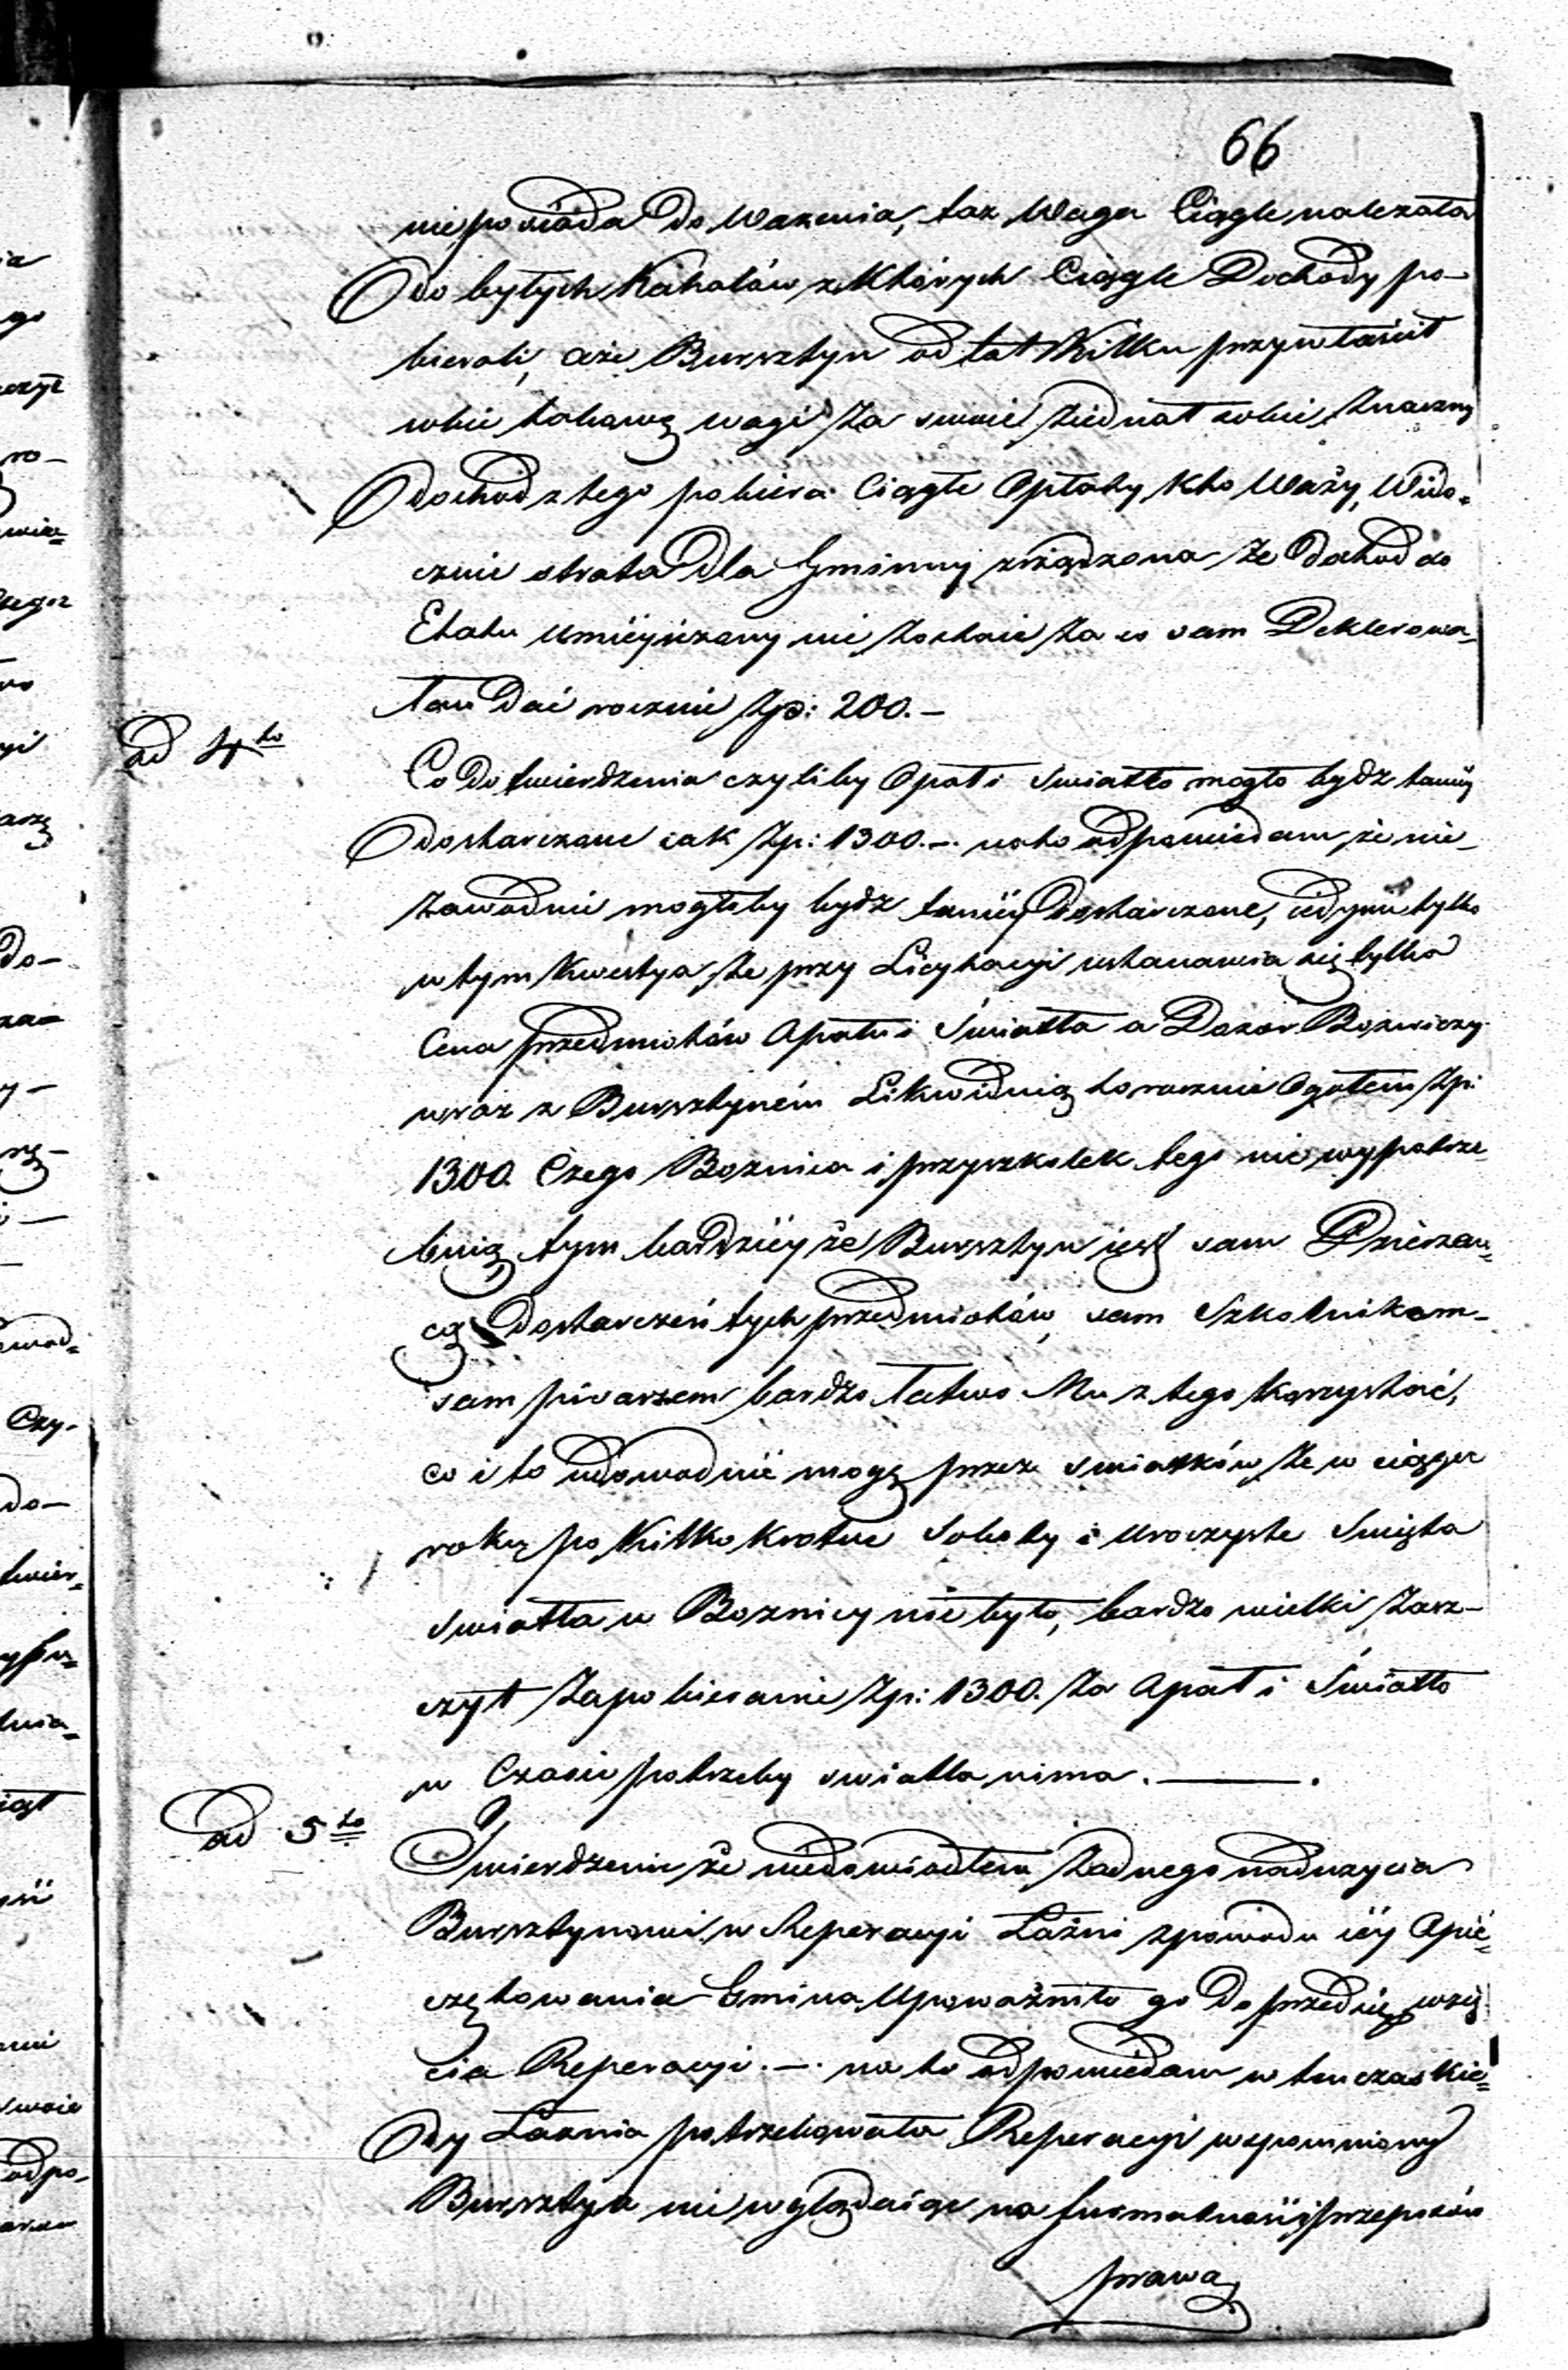 66
nieposiada do Wazenia, taz Waga Ciągle nalezała
do byłych Kahałów z których Ciągle Dochody po-
bierali, aże Bursztyn od lat Kilku przywłaścił
sobie takową wagę za swoie ziednał sobie znaczny
dochod z tego pobiera Ciągłe Opłaty kto Waży, Wido-
cznie strata dla Gminny zrządzona że dochod do
Etatu umieysczany nie zostaie za co sam Deklerowa-
łem Dać rocznie Zp: 200.–
ad 4to
Co do twierdzenia czyliby Opał i swiatło mogło bydz taniey
dostarczane iak Zp: 1300.–. na to odpowiadam że nie-
zawodnie mogłoby bydz taniey dostarczone, iedynie tylko
w tym Kwestya że przy Licytacyi ustanawia się tylko
Cena przedmiotów Opału i Swiatła a Dozor Bozniczy
wraz z Bursztynem Likwiduią to rocznie Ogołem Zp:
1300. Czego Boznica i przyszkolek tego nie wypotrze-
buią tym bardziey że Bursztyn iest sam Dzierzaw-
cą Dostarczeń tych przedmiotów, sam Szkolnikom-
sam pisarzem bardzo łatwo Mu z tego korzystać,
co i to udowodnić mogę przez swiadków że w ciągu
roku po Kilka krotnie Soboty i Uroczyste Swięta
swiatła w Boznicy nie było, bardzo wielki Zarz-
czyt Zapobieranie Zp: 1300. Za Opał i Swiatło
w Czasie potrzeby swiatła nima.
ad 5to
Twierdzenie że niedowiodłem Zadnego naduzycia
Bursztynowi w Reperacyi Łaźni z powodu iéy Opie-
czętowania Gmina Upowazniła go do przedsię wzię-
cia Reperacyi.–. na to odpowiedam w ten czas Kie-
dy Łaznia potrzebowała Reperacyi wspomniony
Bursztyn nie wglądaiąc na formalności przepisów
prawa